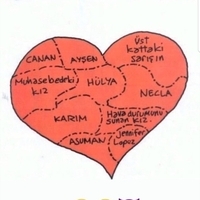 CANAN
AYŞEN
üst
kattaki
sarışın
Muhasebedeki
kız
HÜLYA
NECLA
KARIM
Hava durumunu
sunan kız
ASUMAN
Jennifer
Lopez